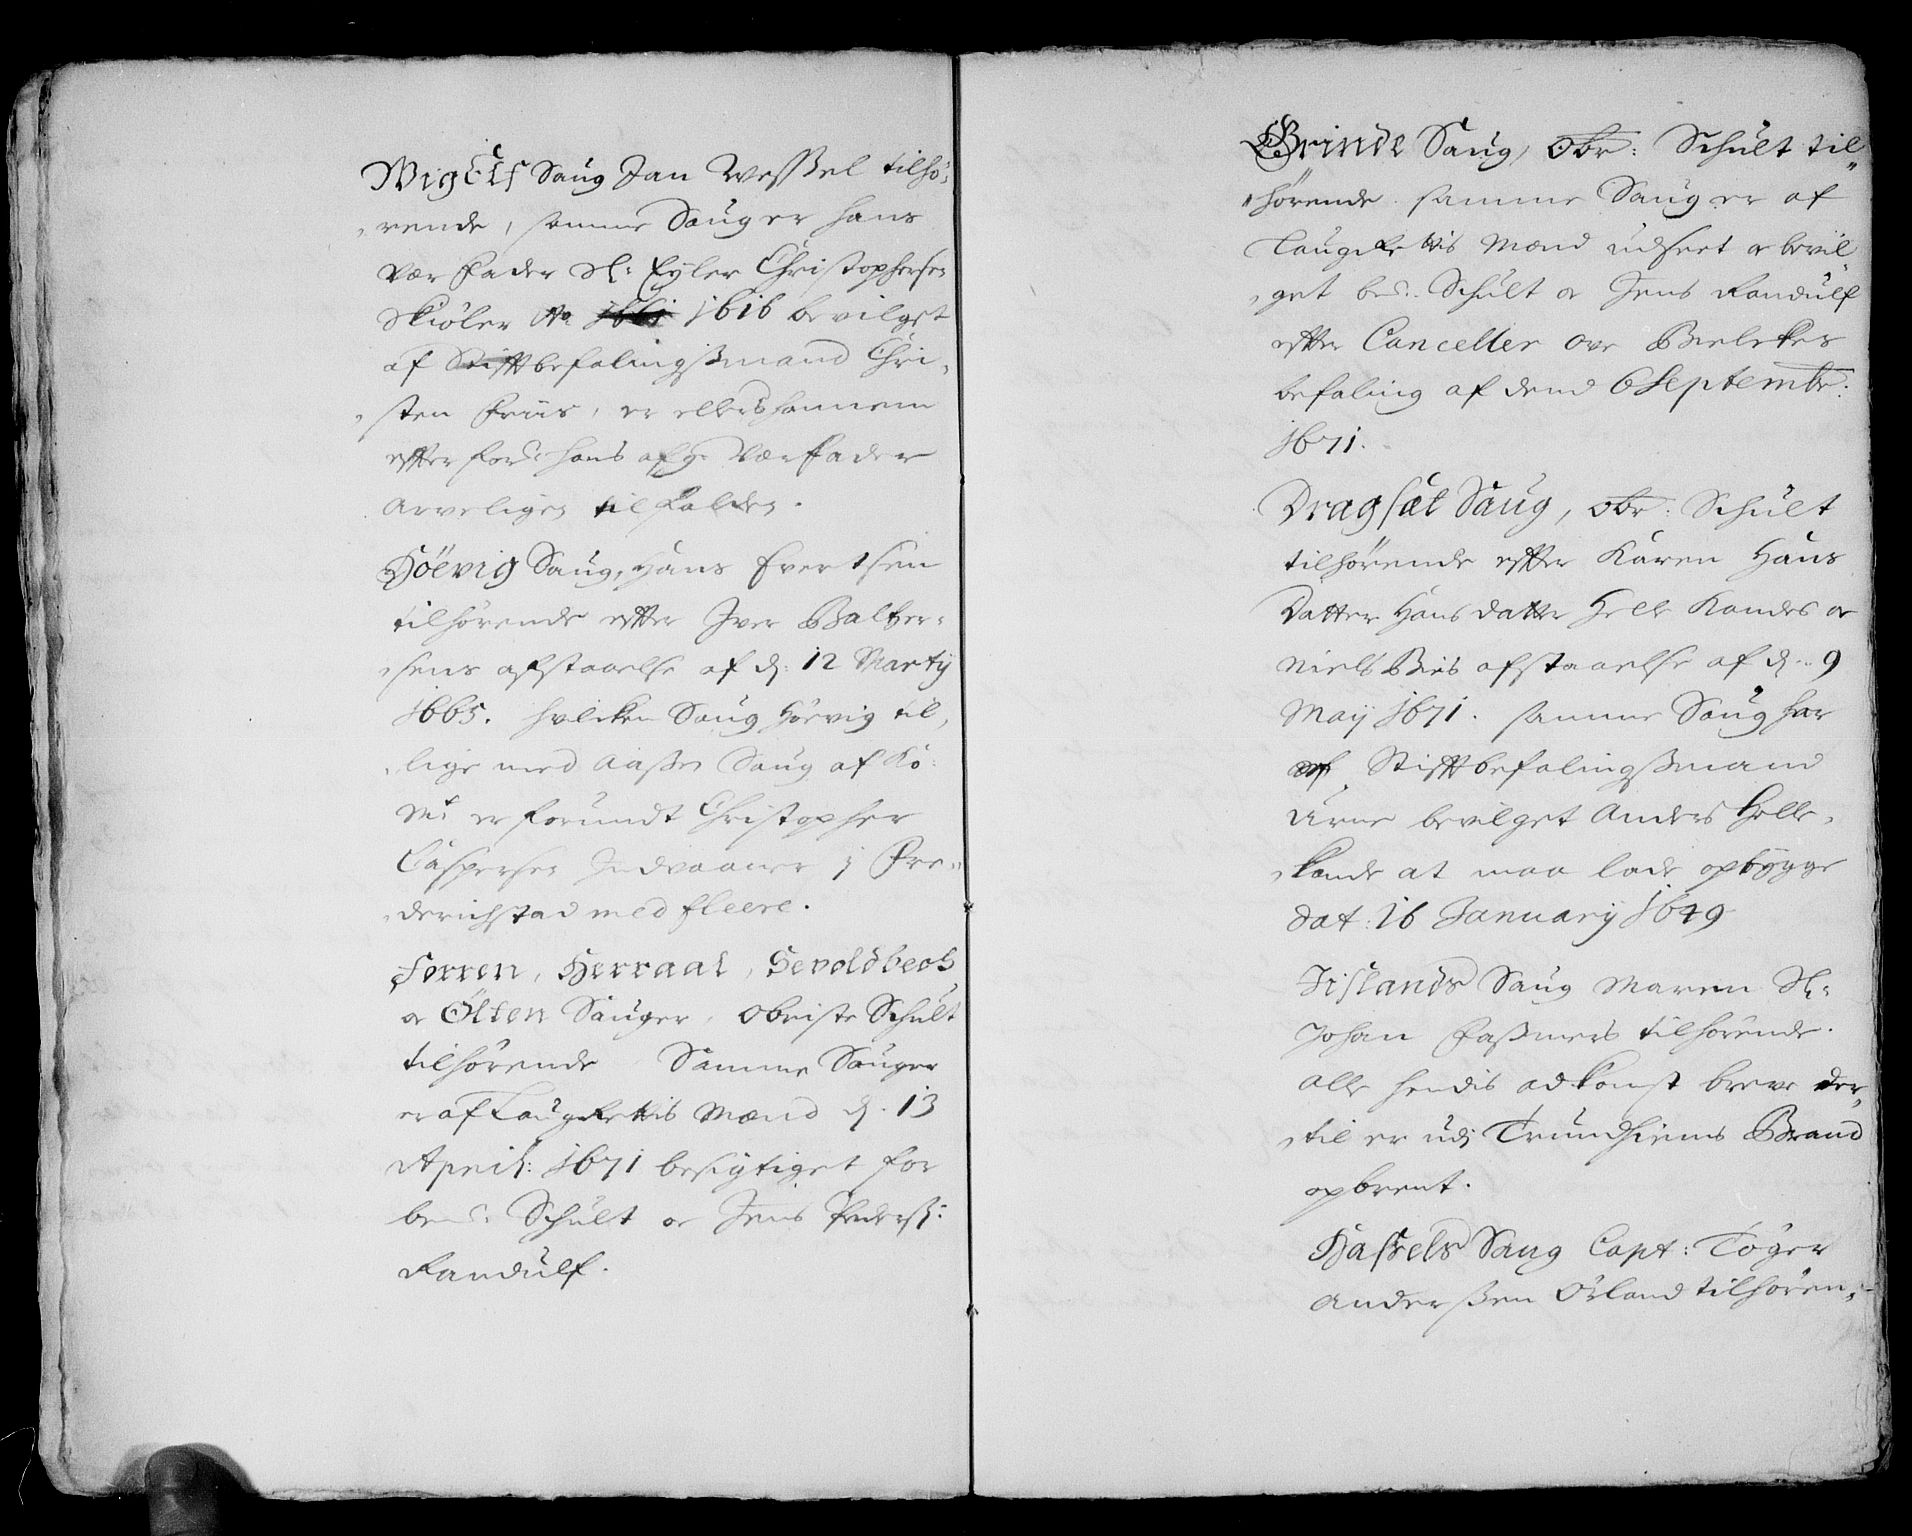 Wigelf Saug Jan Wessel tilhø-
rende, samme Saug er hans
Vær Fader Sl: Eyler Christophersen
Skiøler Ao 1616 bevilget
af Stifftbefalingsmand Chri-
sten Friis, er ellers hannem
effter for: hans afg: Værfader
Arveligen tilfalden.
Höevig Saug, Hans Evertsen
tilhørende effter Iver Baltzer-
sens afstaaelse af d: 12 Marty
1665. hvilcken Saug Höevig til-
lige med Aassen Saug af Ko:
Mt er forundt Christopher
Caspersen Indvaaner j Fre-
derichstad med fleere.
Forren, Herraal, Sevoldbech
oc Ölsen Sauger, Obriste Schult
tilhørende Samme Sauger
er af Laugrettis Mænd d. 13
April: 1671 besigtiget for
bem: Schult oc Jens Pederss:
Randulf.
Grinde Saug, Obr: Schult til-
hörende. samme Saug er af
Laugrettis Mænd udseet oc bevil-
get bem: Schult oc Jens Randulf
effter Canceller Ove Bielckes
befaling af dend 6 Septembr:
1671.
Dragset Saug, Obr: Schult
tilhörende effter Karen Hans
Datter Hans datter Helle Kandes oc
Niels Bies afstaaelse af d: 9
May 1671. samme Saug har
af Stifftbefalingsmand
Urne bevilget Anders Helle-
kande at maa lade opbygge
dat: 16 January 1649
Iislands Saug Maren Sl:
Johan Fasmers tilhörende.
alle hendis adkomst breve der-
til er udj Trundhiems Brand
opbrent.
Hassels Saug Capt: Töger
Anderssen Orland tilhören-